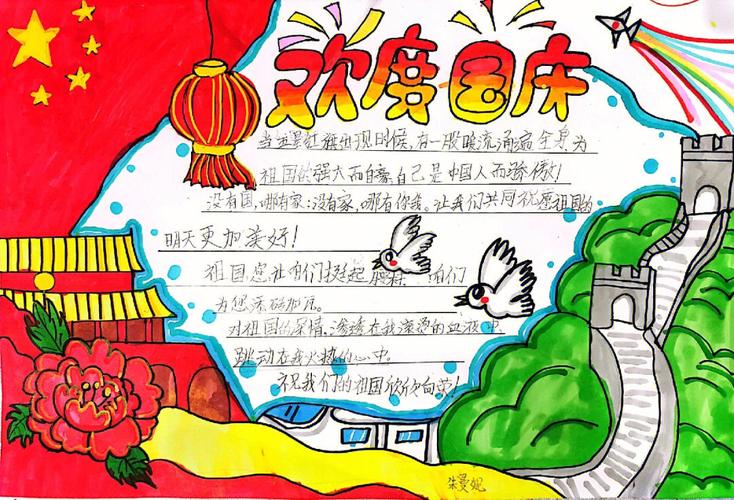 欢度国庆
当五星红旗出现时候,有一股暖流涌遍全身为
祖国的强大而自豪,自己是中国人而骄傲!
没有国,哪有家;没有家,哪有你我。让我们共同祝愿祖国的
明天更加美好!
祖国您让咱们挺起 咱们
为您添砖加瓦。
对祖国的深情,渗透在我滚烫的血液中,
跳动在我火热的心中。
祝我们的祖国欣欣向荣!
朱曼妮